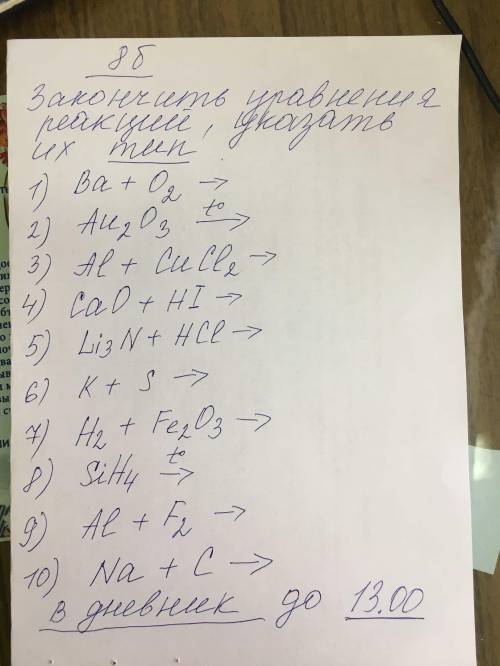 8б
Закончить уравнения
реакций, указать
их тип
1) Ba + O2 →
2) Au2O3 t° →
3) Al + CuCl2 →
4) CaO + HI →
5) Li3N + HCl →
6) K + S →
7) H2 + Fe2O3 →
8) SiH4 t° →
9) Al + F2 →
10) Na + C →
в дневник до 13.00